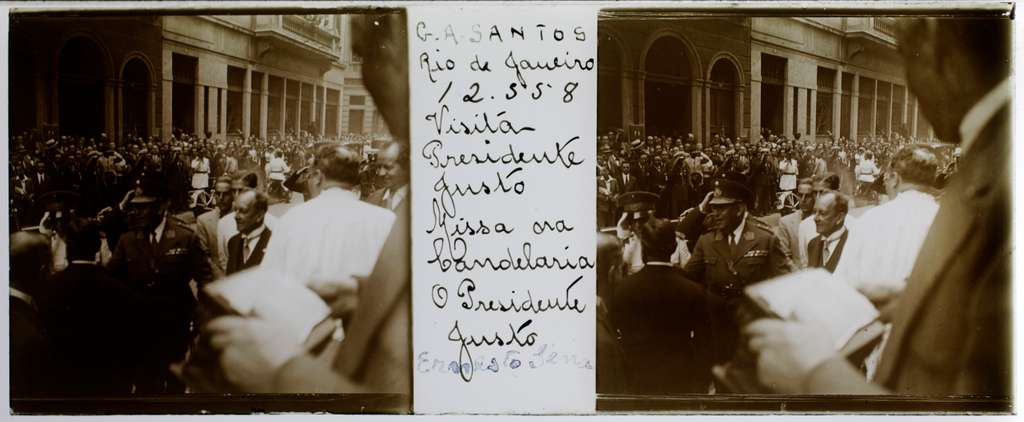 G. A. SANTOS
Rio de Janeiro
12.558
Visita
Presidente
Justo
Missa na
Candelaria
O Presidente
Justo
Ernesto